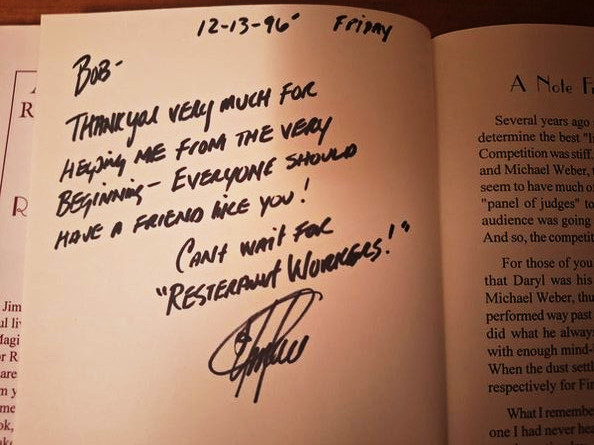 R
R
Jim
12-13-96 Friday
Bob-
Thank you very much for
helping me from the very
beginning- Everyone should
have a friend like you!
Cant wait for
"Resteraunt Workers!"
A Note
Several years ago
determine the best
Competition was stiff.
and Michael Weber,
seem to have much of
"panel of judges" to
audience was going
And so, the
For those of you
that Daryl was his
Michael Weber,
performed way past
did what he
with enough
When the dust
respectively for
What I
one I had never